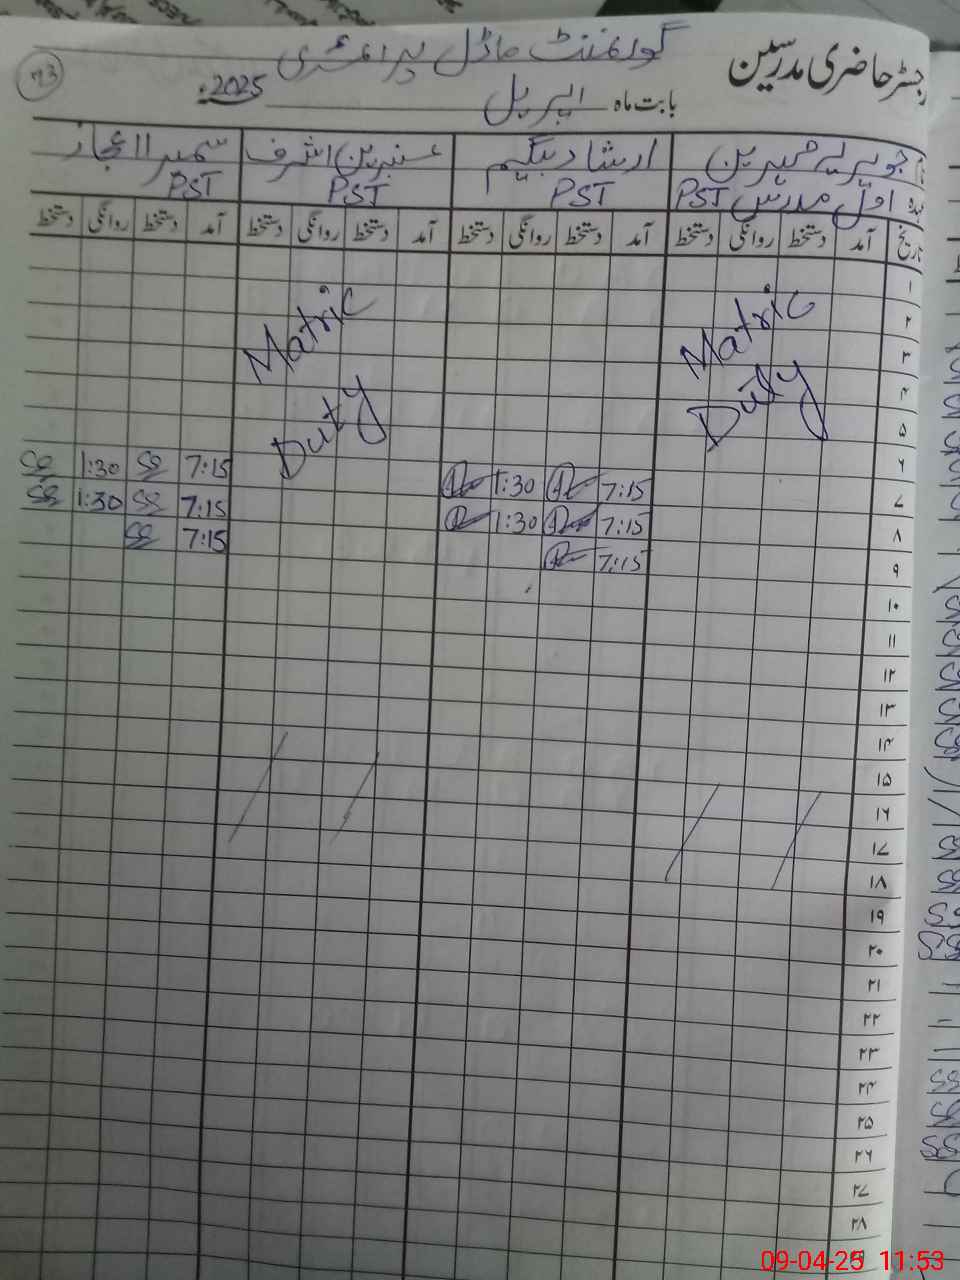 رجسٹر حاضری مدرسین
گورنمنٹ ماڈل پرائمری
بابت ماہ اپریل 2025ء
73
نام جویریہ مہرین ارشاد بیگم عنبرین اشرف سمیرا اعجاز
عہدہ اول مدرس PST PST PST PST
تاریخ آمد دستخط روانگی دستخط آمد دستخط روانگی دستخط آمد دستخط روانگی دستخط آمد دستخط روانگی دستخط
۱
۲
۳
۴
۵
Matric Duty
Matric Duty
۶
۷ 7:15 1:30 7:15 1:30
۸ 7:15 1:30 7:15 1:30
۹ 7:15 7:15
۱۰
۱۱
۱۲
۱۳
۱۴
۱۵
۱۶
۱۷
۱۸
۱۹
۲۰
۲۱
۲۲
۲۳
۲۴
۲۵
۲۶
۲۷
۲۸
09-04-25 11:53